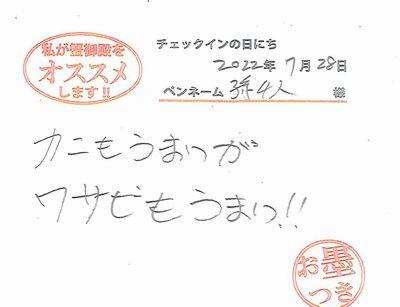 私が蟹御殿を
オススメ
します!!
チェックインの日にち
2022年7月28日
ペンネーム 孫4人 様
カニもうまいが
ワサビもうまい!!
お墨つき